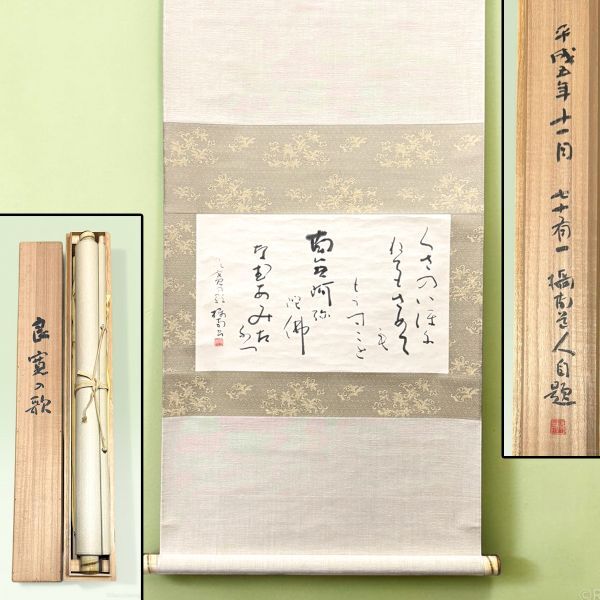 平成五年十一月 七十有一 道人自題
くさのいほに
ねてもさめて
も
もうすこと
南無阿弥
陀佛
なむあみた
ふつ
良寛の歌
良寛の歌